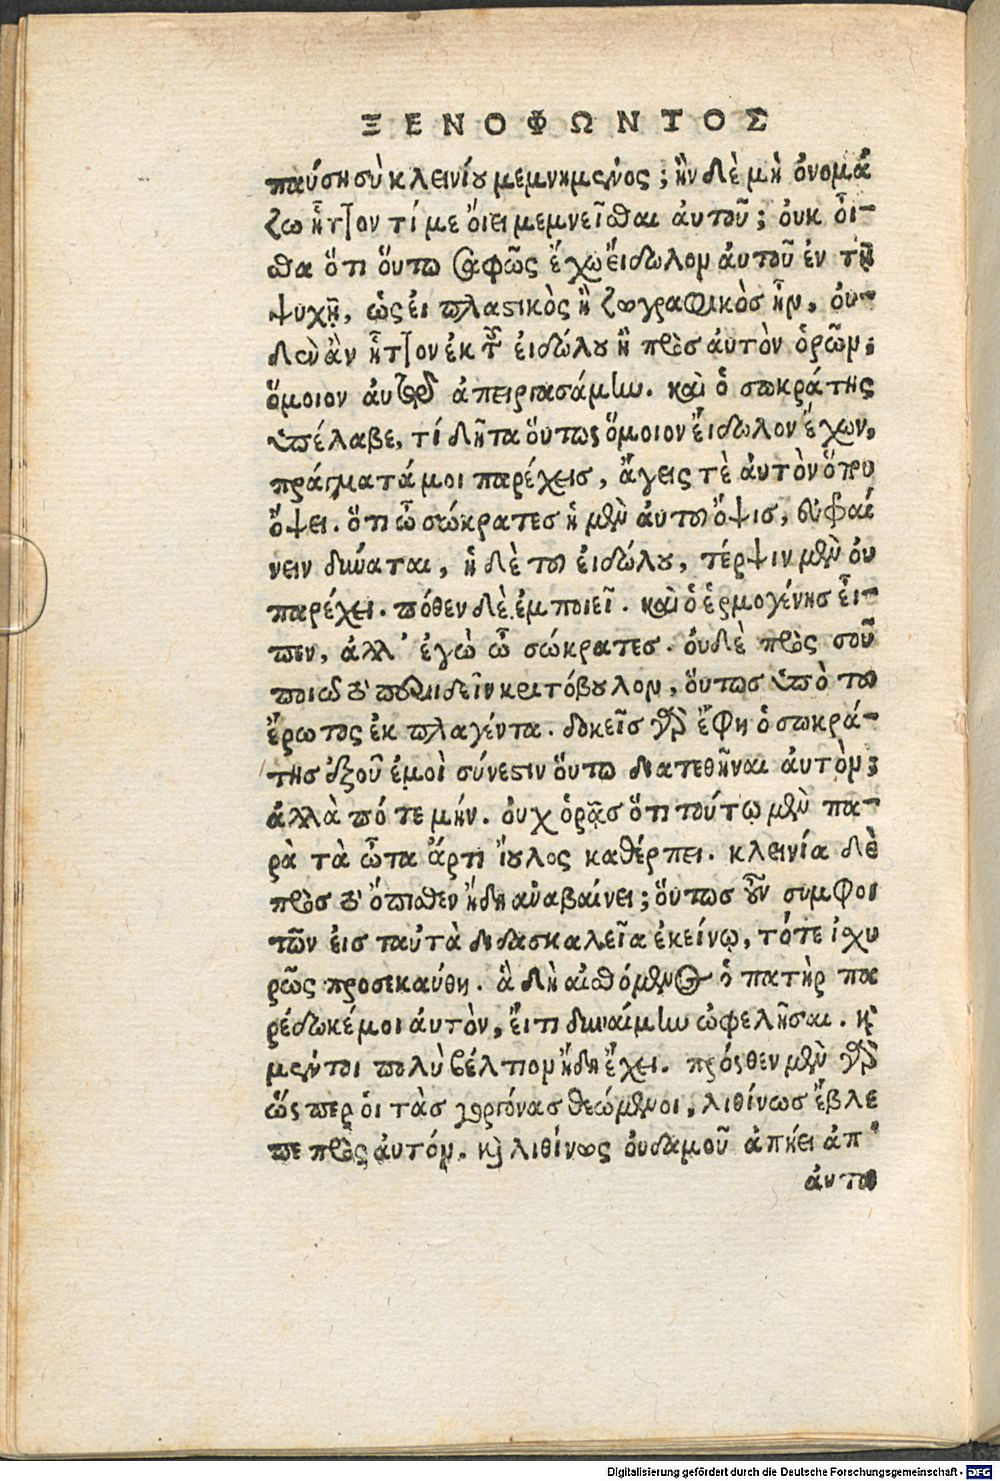 ΞΕΝΟΦΩΝΤΟΣ
παύσῃ σὺ κλεινίου μεμνημένος; ἢν δὲ μὴ ὀνομά
ζω ἧττον τί με ὄιει μεμνεῖσθαι ἀυτοῦ; ὀυκ οἶ-
σθα ὅτι ὅυτω σαφῶς ἔχω ἔιδωλον ἀυτοῦ ἐν τῇ
ψυχῇ, ὡς ἐι πλαστικὸς ἢ ζωγραφικὸσ ἦν, ὀυ-
δὲν ἂν ἧττον ἐκ τοῦ ἐιδώλου ἢ πρὸσ ἀυτὸν ὁρῶν;
ὅμοιον ἀυτῷ ἀπειργασάμην. καὶ ὁ σωκράτης
ὑπέλαβε, τί δῆτα ὅυτως ὅμοιον ἔιδωλον ἔχων,
πράγματά μοι παρέχεισ, ἄγεις τὲ ἀυτὸν ὅπου
ὄψει. ὅτι ὦ σώκρατεσ ἡ μὲν ἀυτοῦ ὄψισ, ἐυφραί
νειν δύναται, ἡ δὲ τοῦ ἐιδώλου, τέρψιν μὲν ὀυ
παρέχει. πόθεν δὲ ἐμποιεῖ. καὶ ὁ ἑρμογένησ εἶ-
πεν, ἀλλ' ἐγὼ ὦ σώκρατεσ. ὀυδὲ πρὸς σοῦ
ποιῶ τὸ περιιδεῖν κριτόβουλον, ὅυτωσ ὑπὸ τοῦ
ἔρωτος ἐκπλαγέντα. δοκεῖς γὰρ ἔφη ὁ σωκρά-
τησ ἐξ οὗ ἐμοὶ σύνεστιν ὅυτω διατεθῆναι ἀυτὸν;
ἀλλὰ πότε μήν. ὀυχ ὁρᾷσ ὅτι τούτῳ μὲν πα-
ρὰ τὰ ὦτα ἄρτι ἴουλος καθέρπει. κλεινίᾳ δὲ
πρὸσ τὸ ὄπισθεν ἤδη ἀναβαίνει; ὅυτωσ οὖν συμφοι
τῶν ἐισ ταὐτὰ διδασκαλεῖα ἐκείνῳ, τότε ἰσχυ
ρῶς προσεκαύθη. ἃ δὴ αἰσθόμενος ὁ πατὴρ πα
ρέδωκέ μοι ἀυτὸν, ἔι τι δυναίμην ὠφελῆσαι. καὶ
μέντοι πολὺ βέλτιον ἤδη ἔχει. πρόσθεν μὲν γὰρ
ὥσπερ ὁι τὰσ γοργόνασ θεώμενοι, λιθίνωσ ἔβλε
πε πρὸς ἀυτόν. καὶ λιθίνως ὀυδαμοῦ ἀπῄει ἀπ'
ἀυτοῦ
Digitalisierung gefördert durch die Deutsche Forschungsgemeinschaft - DFG